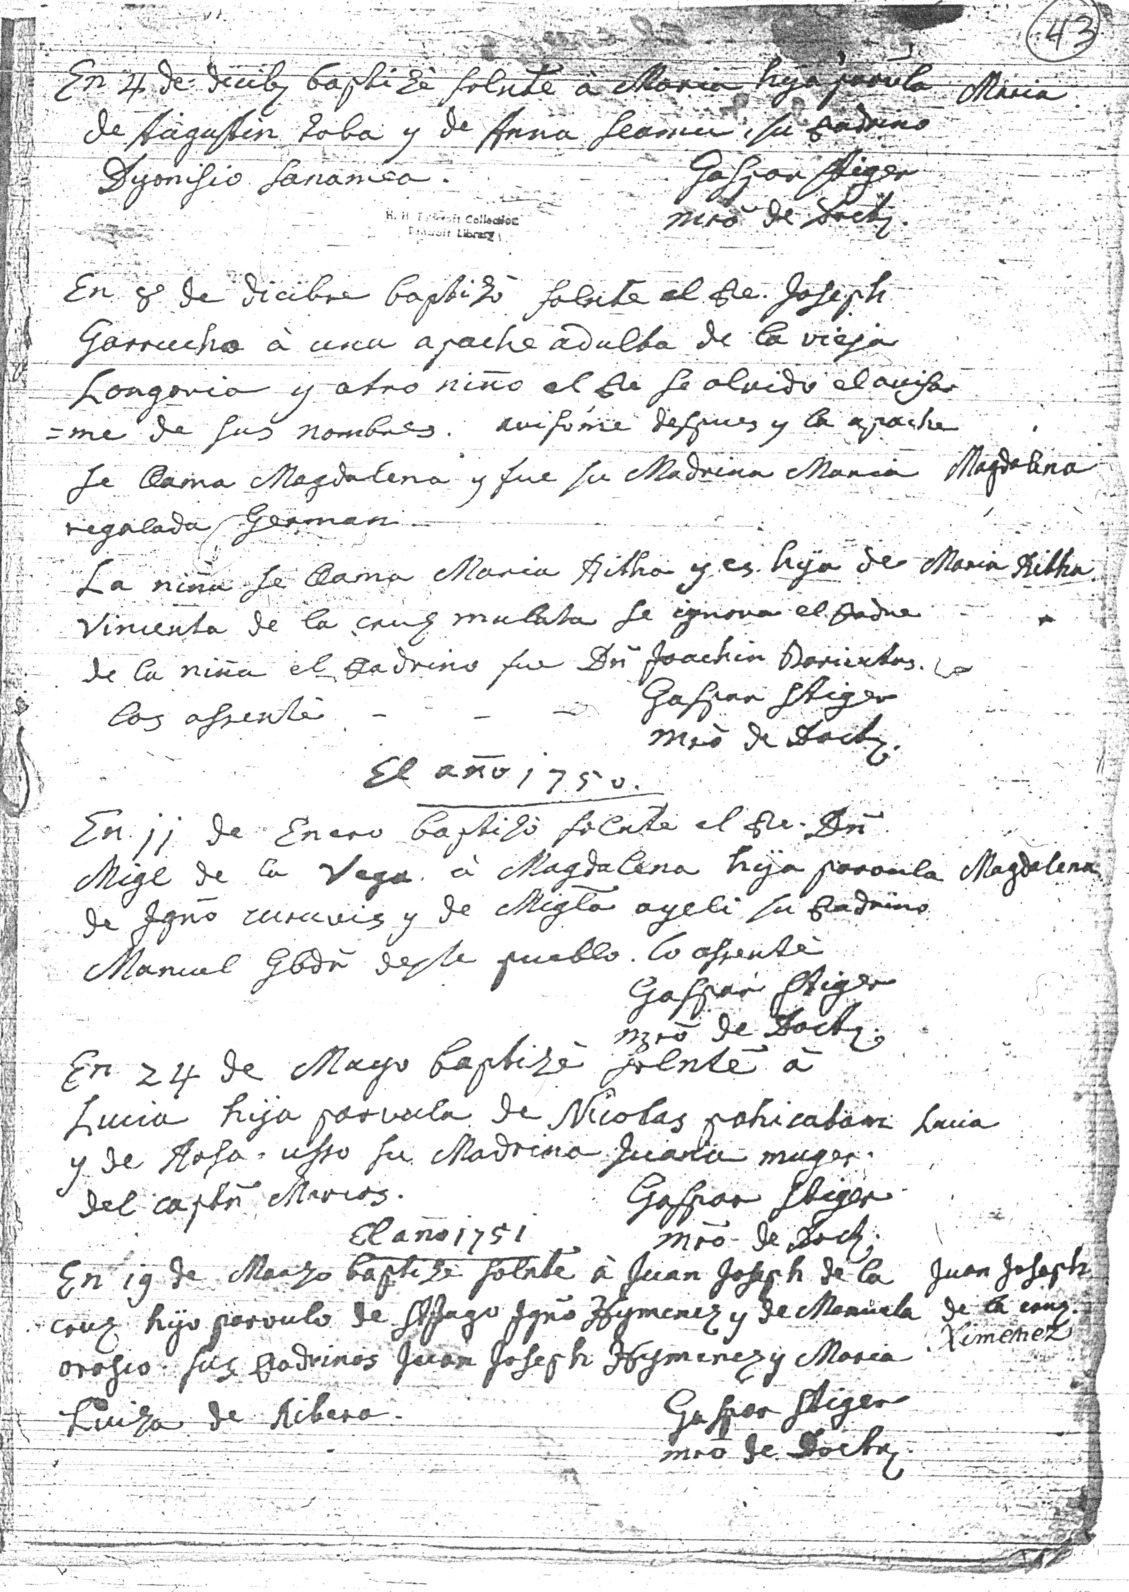 43
En 4 de dicibz baptizè solnte à Maria hija parvula
Maria
de Augustin toba y de Anna seamu, su Padrino
Dyonisio sanamea.
Gaspar Stiger
mrō de Doctz.
B. H. Bancroft Collection
Bancroft Library
En 8 de dicibre baptizò solnte el Pe. Joseph
Garrucho à una apache adulta de la vieja
Longoria y otro niño el Pe se olvidò el avisar
=me de sus nombres. avisóme despues y la apache
se llama Magdalena y fue su Madrina Maria
Magdalena
regalada German
La niña se llama Maria Ritha y es hija de
Maria Ritha
Vincenta de la cruz mulata se ignora el Padre
de la niña el Padrino fue Dn̄ Joachin Barientos. yo
los assentè
Gaspar Stiger
mrō de Doctz.
El año 1750.
En 11 de Enero baptizò solnte el Pe. Dn̄
Migl de la Vega à Magdalena hija parvula
Magdalena
de Ignō curuvis y de Migla ayeli su Padrino
Manuel Gbdr̄ deste pueblo. lo assentè
Gaspar Stiger
mrō de Doctz.
En 24 de Mayo baptizè solnte à
Lucia hija parvula de Nicolas pahicatam
Lucia
y de Rosa usso su Madrina Juana muger
del captn̄ Marcos.
Gaspar Stiger
mrō de Doctz.
El año 1751
En 19 de Marzo baptizè solnte à Juan Joseph de la
Juan Joseph
cruz hijo parvulo de Stjago Ignō Hymenez y de Manuela
de la cruz.
Ximenez
orosio. sus Padrinos Juan Joseph Hymenez y Maria
Luiza de Ribera.
Gaspar Stiger
mrō de Doctz.